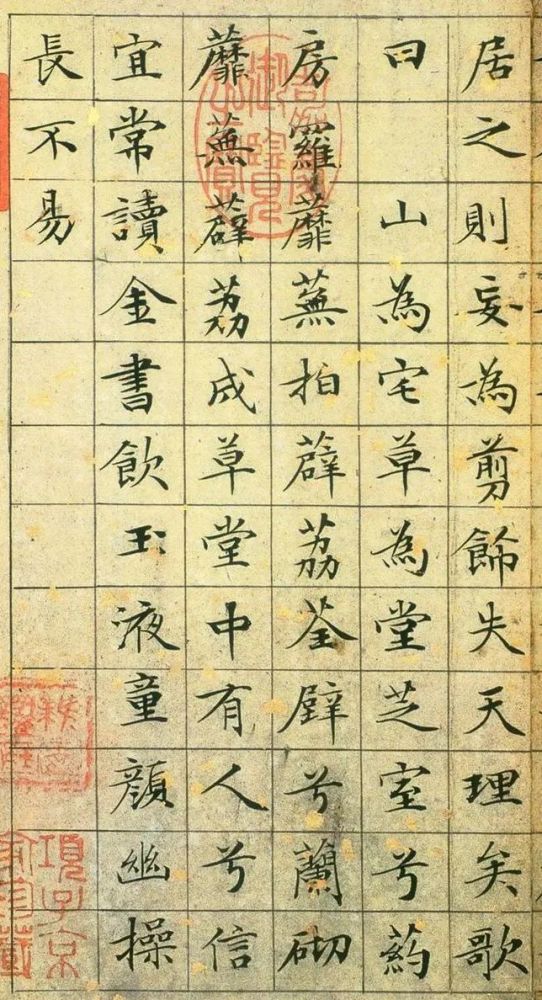 居之則妄為剪飾失天理矣歌
曰 山為宅草為堂芝室兮葯
房羅蘼蕪拍薜荔荃壁兮蘭砌
蘼蕪薜荔成草堂中有人兮信
宜常讀金書飲玉液童顏幽操
長不易
項子京
家珍藏